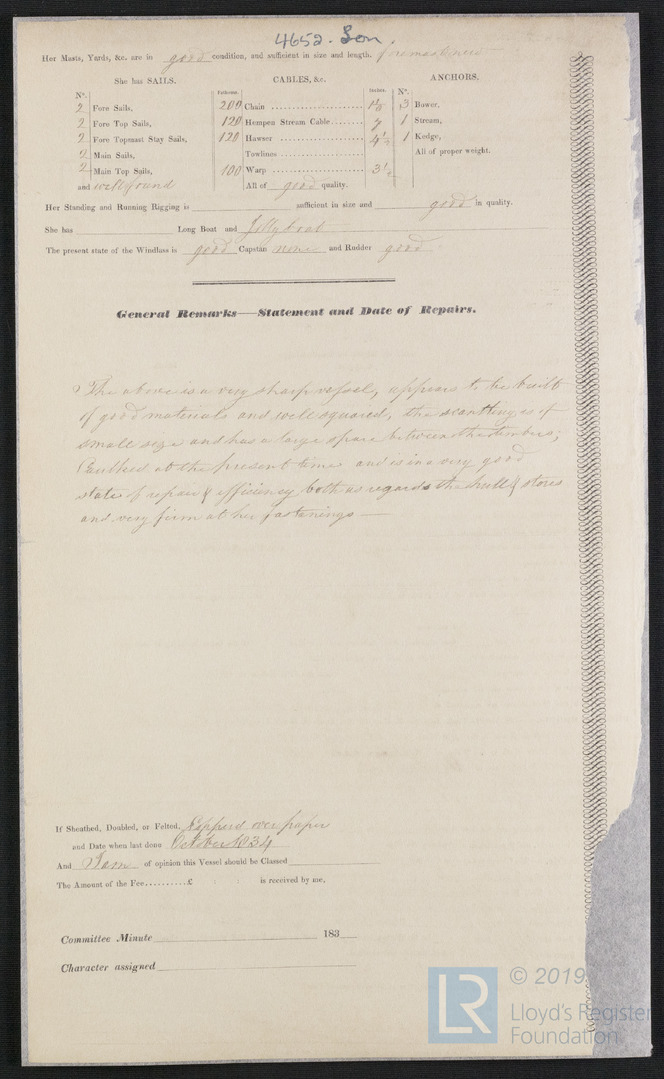 4652. Lon.
Her Masts, Yards, &c. are in good condition, and sufficient in size and length.
She has SAILS. CABLES, &c. ANCHORS.
N°. Fathoms. Inches. N°.
2 Fore Sails, 200 Chain 3 Bower,
2 Fore Top Sails, 120 Hempen Stream Cable 7 1 Stream,
2 Fore Topmast Stay Sails, 120 Hawser 4 1/2 1 Kedge,
2 Main Sails, Towlines All of proper weight.
2 Main Top Sails, 100 Warp 3 1/2
and well found All of good quality.
Her Standing and Running Rigging is sufficient in size and good in quality.
She has Long Boat and Jolly boat
The present state of the Windlass is good Capstan none and Rudder good
General Remarks—Statement and Date of Repairs.
The above is a very sharp vessel, appears to be built
of good materials and well squared, the scantling is of
small size and has a large space between the timbers;
Caulked at the present time and is in a very good
state of repair & efficiency both as regards the hull & stores
and very firm at her fastenings —
If Sheathed, Doubled, or Felted, Coppered over paper
and Date when last done October 1834
And I am of opinion this Vessel should be Classed
The Amount of the Fee..........£ : is received by me,
Committee Minute 183
Character assigned
© 2019
LR Lloyd's Register
Foundation